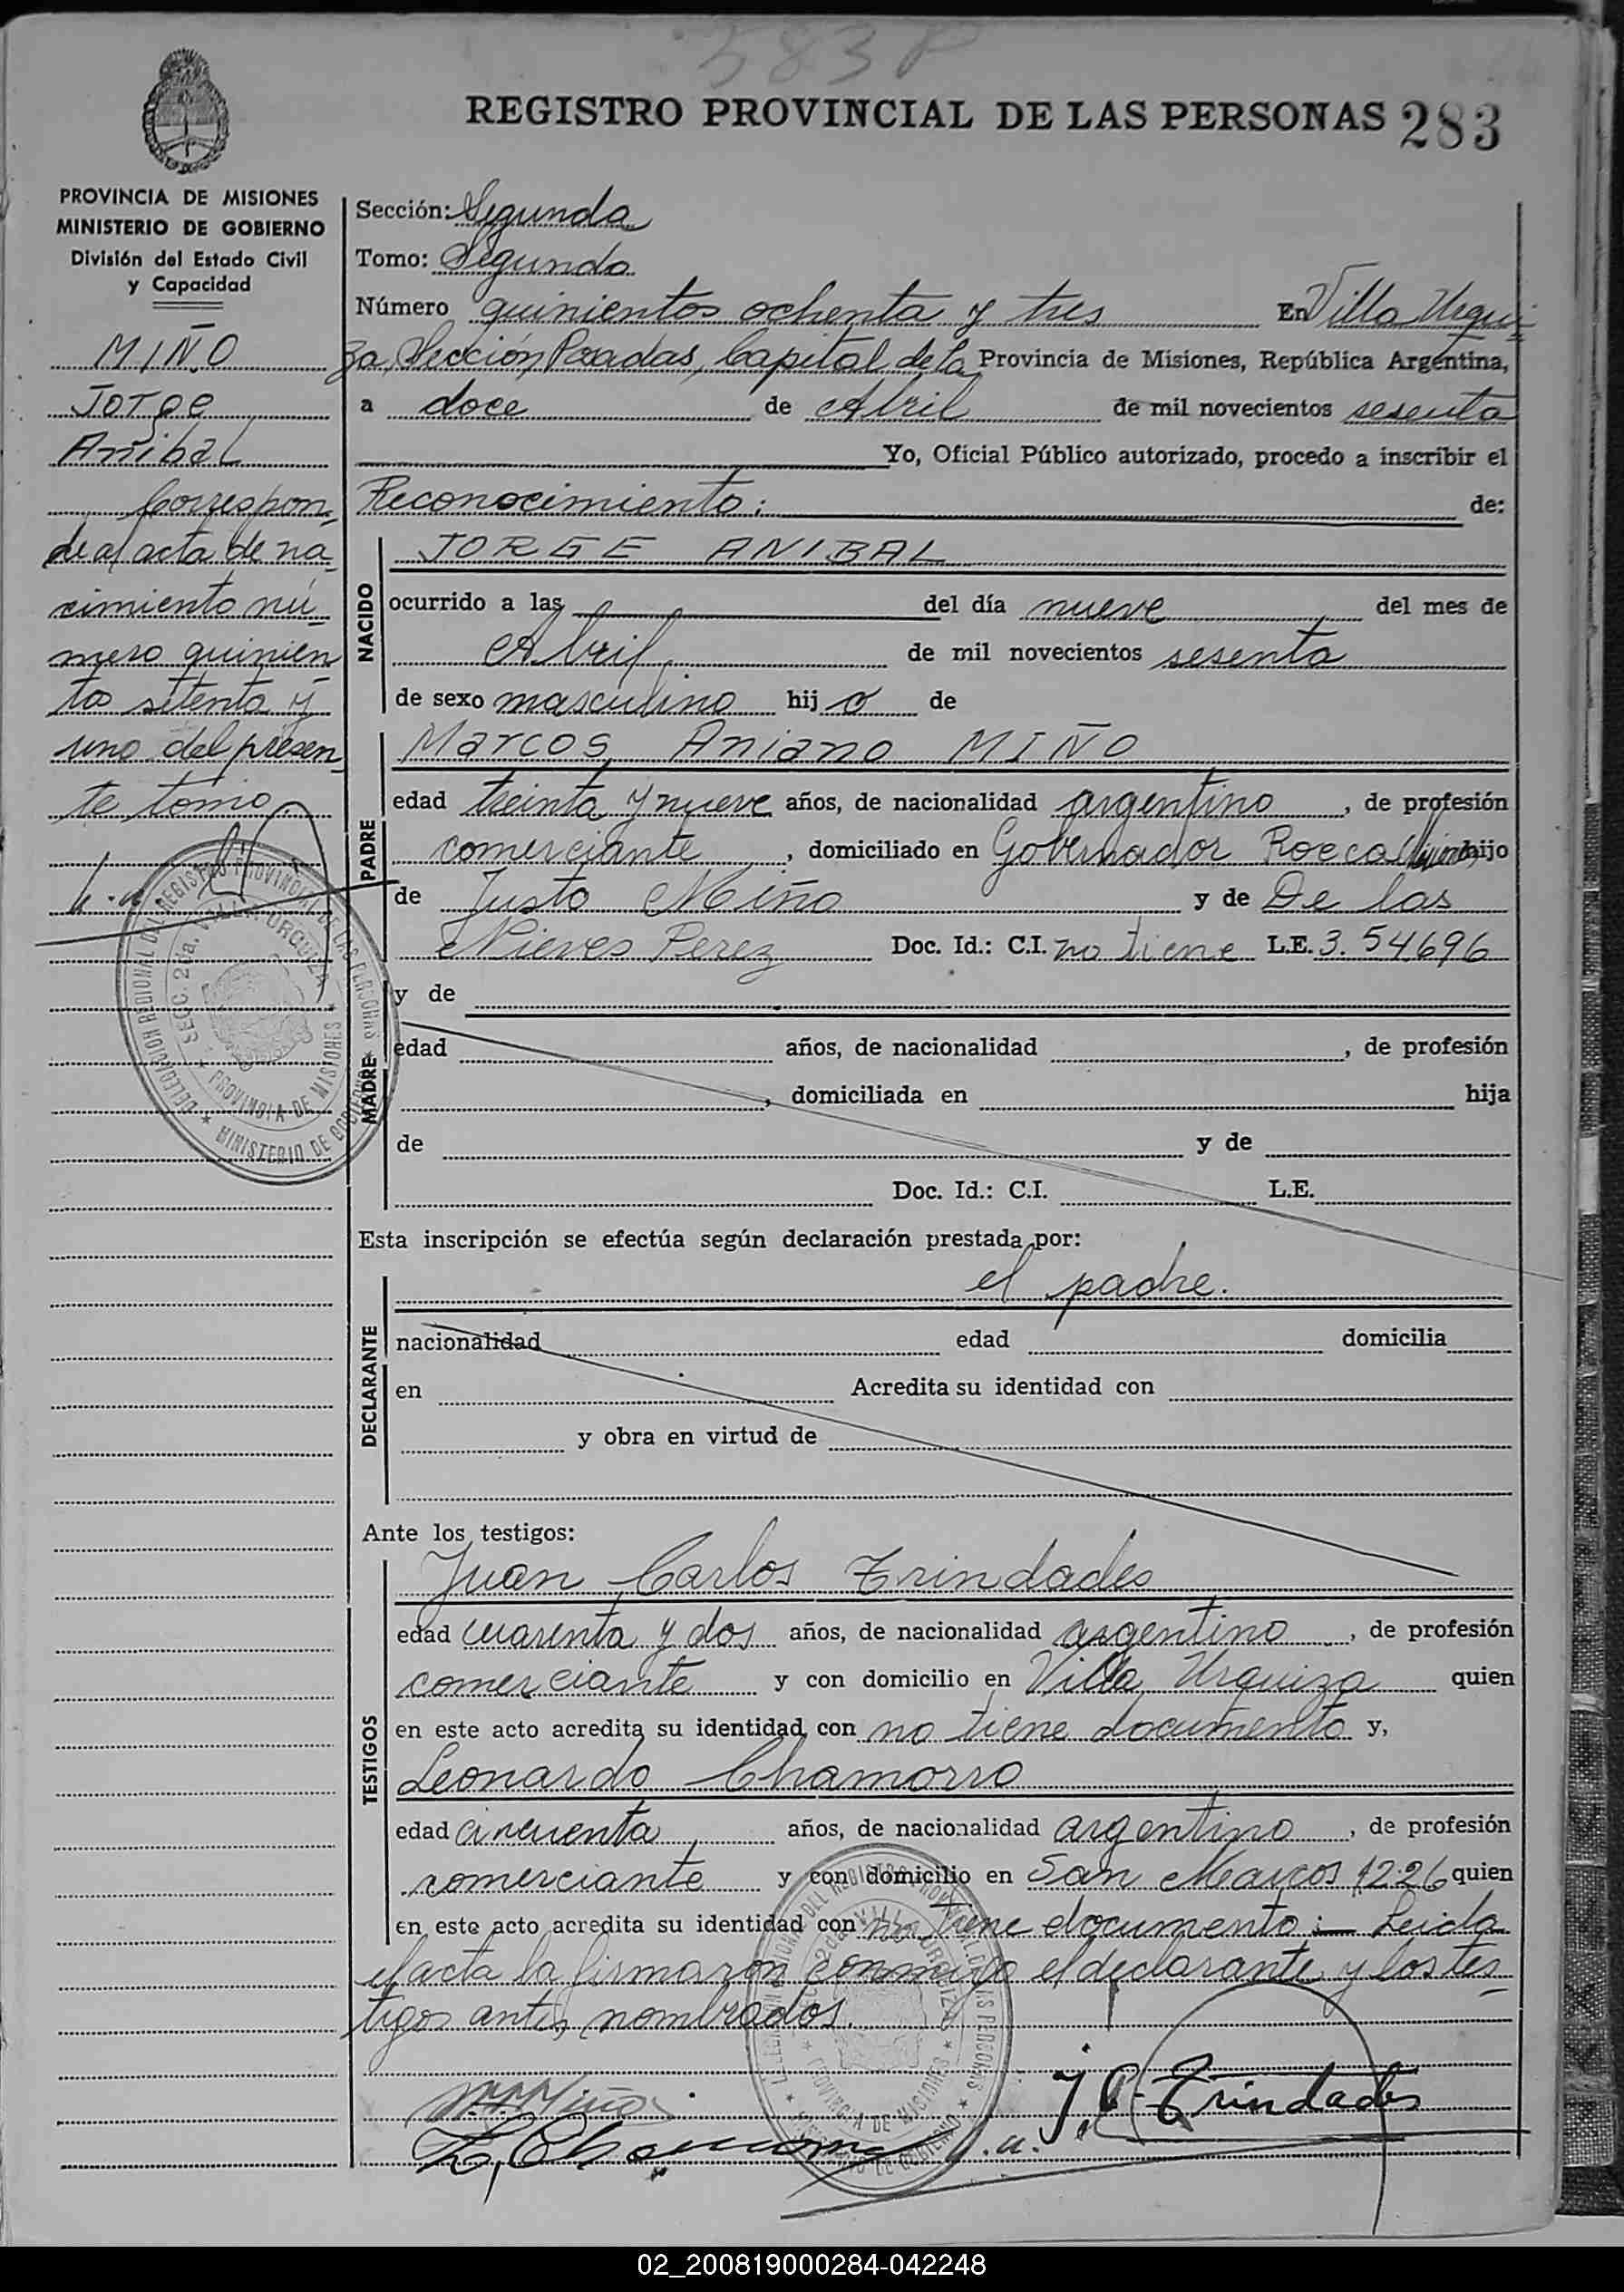 583 P
REGISTRO PROVINCIAL DE LAS PERSONAS 283
PROVINCIA DE MISIONES
MINISTERIO DE GOBIERNO
División del Estado Civil
y Capacidad
MIÑO
Jorge
Anibal
Correspon
de al acta de na
cimiento nú
mero quinien
tos setenta y
uno del presen
te tomo
Sección: Segunda
Tomo: Segundo
Número quinientos ochenta y tres En Villa Urqui
za, Sección, Posadas, Capital de la Provincia de Misiones, República Argentina,
a doce de Abril de mil novecientos sesenta
Yo, Oficial Público autorizado, procedo a inscribir el
Reconocimiento: de:
NACIDO
JORGE ANIBAL
ocurrido a las del día nueve del mes de
Abril de mil novecientos sesenta
de sexo masculino hij o de
PADRE
Marcos Aniano MIÑO
edad treinta y nueve años, de nacionalidad argentino, de profesión
comerciante, domiciliado en Gobernador Roca hijo
de Justo Miño y de De las
Nieves Perez Doc. Id.: C.I. no tiene L.E. 3.54696
MADRE
y de
edad años, de nacionalidad , de profesión
, domiciliada en hija
de y de
Doc. Id.: C.I. L.E.
Esta inscripción se efectúa según declaración prestada por:
el padre.
DECLARANTE
nacionalidad edad domicilia
en Acredita su identidad con
y obra en virtud de
Ante los testigos:
TESTIGOS
Juan Carlos Trindades
edad cuarenta y dos años, de nacionalidad argentino, de profesión
comerciante y con domicilio en Villa Urquiza quien
en este acto acredita su identidad con no tiene documento y,
Leonardo Chamorro
edad cincuenta años, de nacionalidad argentino, de profesión
comerciante y con domicilio en San Marcos 1226 quien
en este acto acredita su identidad con no tiene documento: Leida
el acta la firmaron conmigo el declarante y los tes
tigos antes nombrados.
DELEGACION REGIONAL DEL REGISTRO PROVINCIAL DE LAS PERSONAS
SECC. 2da. VILLA URQUIZA
PROVINCIA DE MISIONES
MINISTERIO DE GOBIERNO
J. C. Trindades
L. Chamorro
02_200819000284-042248